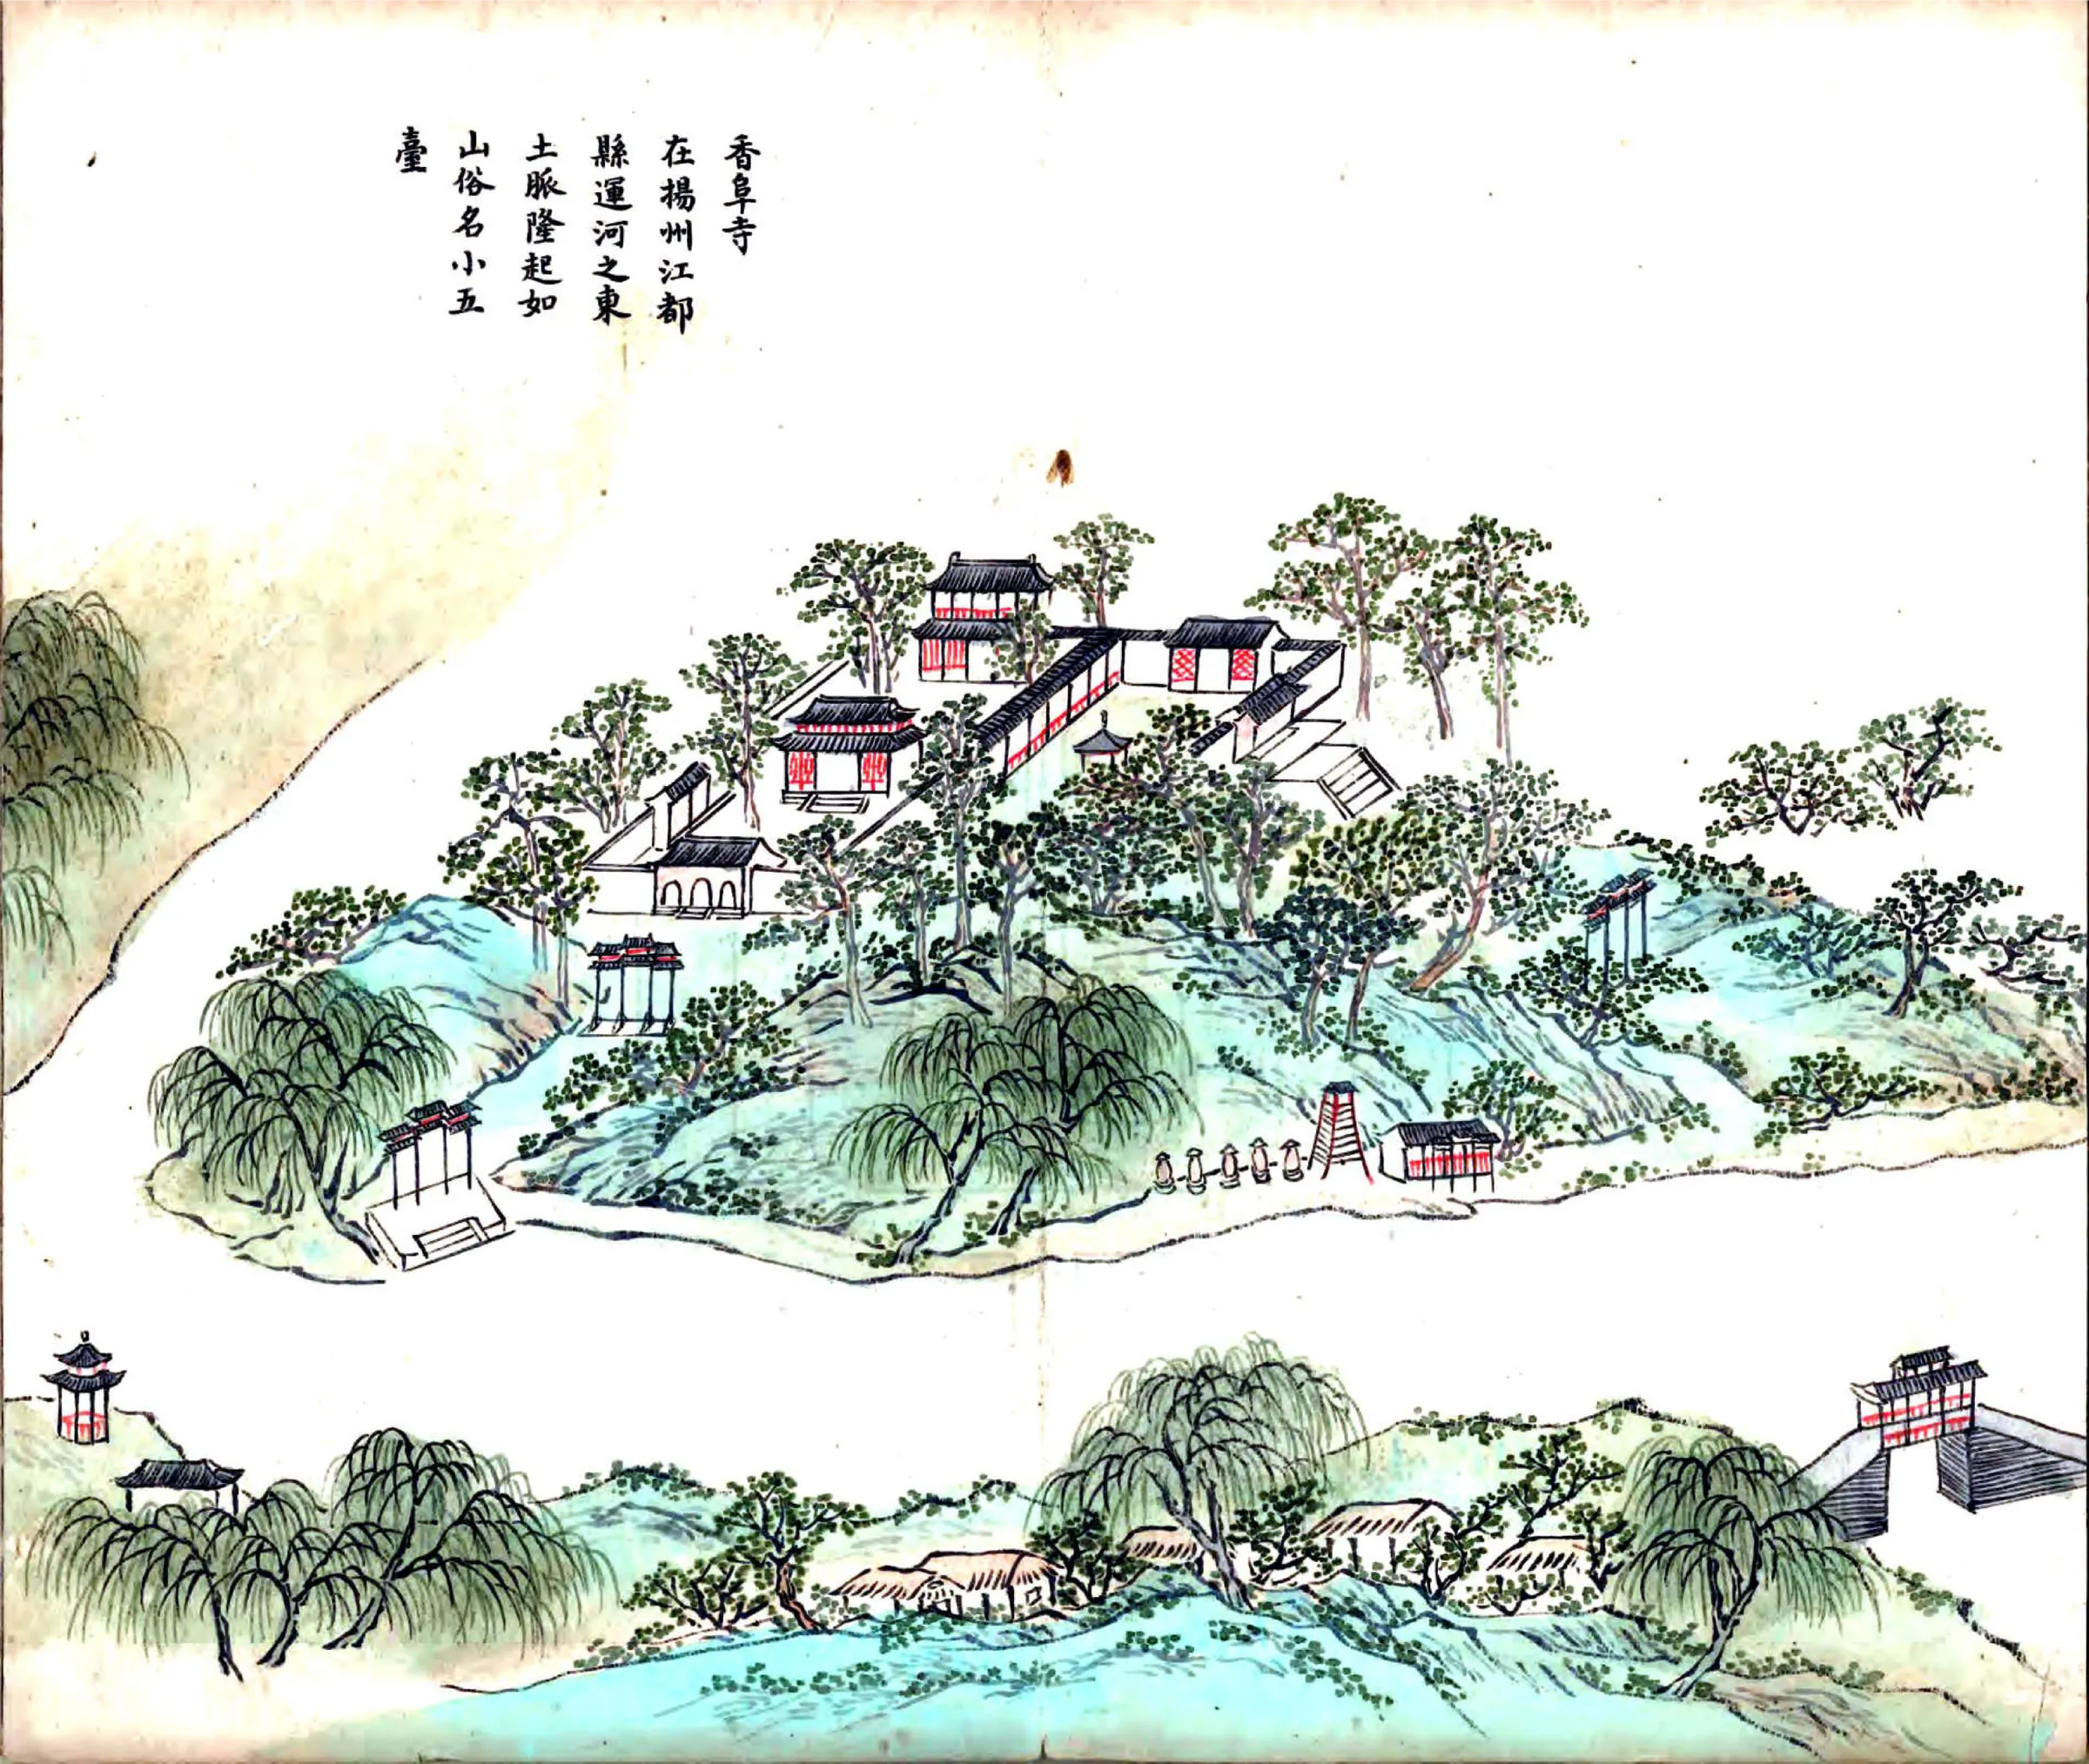 香阜寺
在揚州江都
縣運河之東
土脈隆起如
山俗名小五
臺